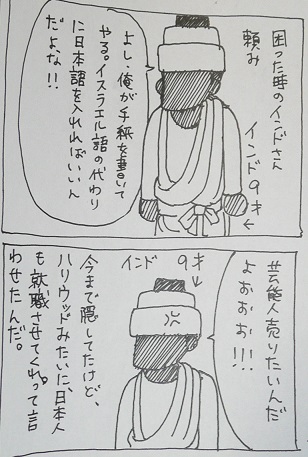 困った時のインドさん
頼み
インド9才
よし、俺が手紙を書いて
やる。イスラエル語の代わり
に日本語を入れればいいん
だよな!!
芸能人売りたいんだ
よぉぉぉ!!!
インド 9才
今まで隠してたけど、
ハリウッドみたいに、日本人
も就職させてくれって言
わせたんだ。